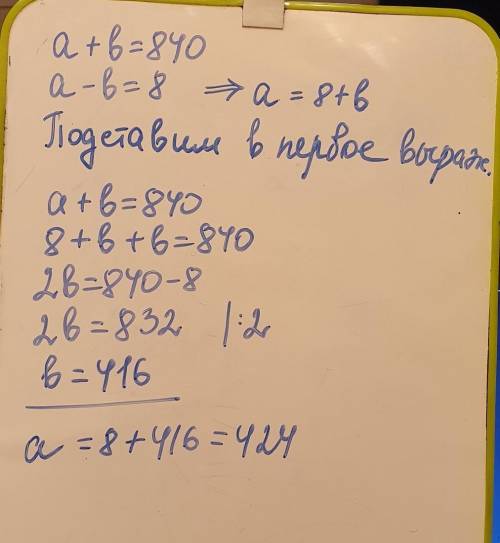 a + b = 840
a - b = 8 ⇒ a = 8 + b
Подставим в первое выраж.
a + b = 840
8 + b + b = 840
2b = 840 - 8
2b = 832 |:2
b = 416
a = 8 + 416 = 424